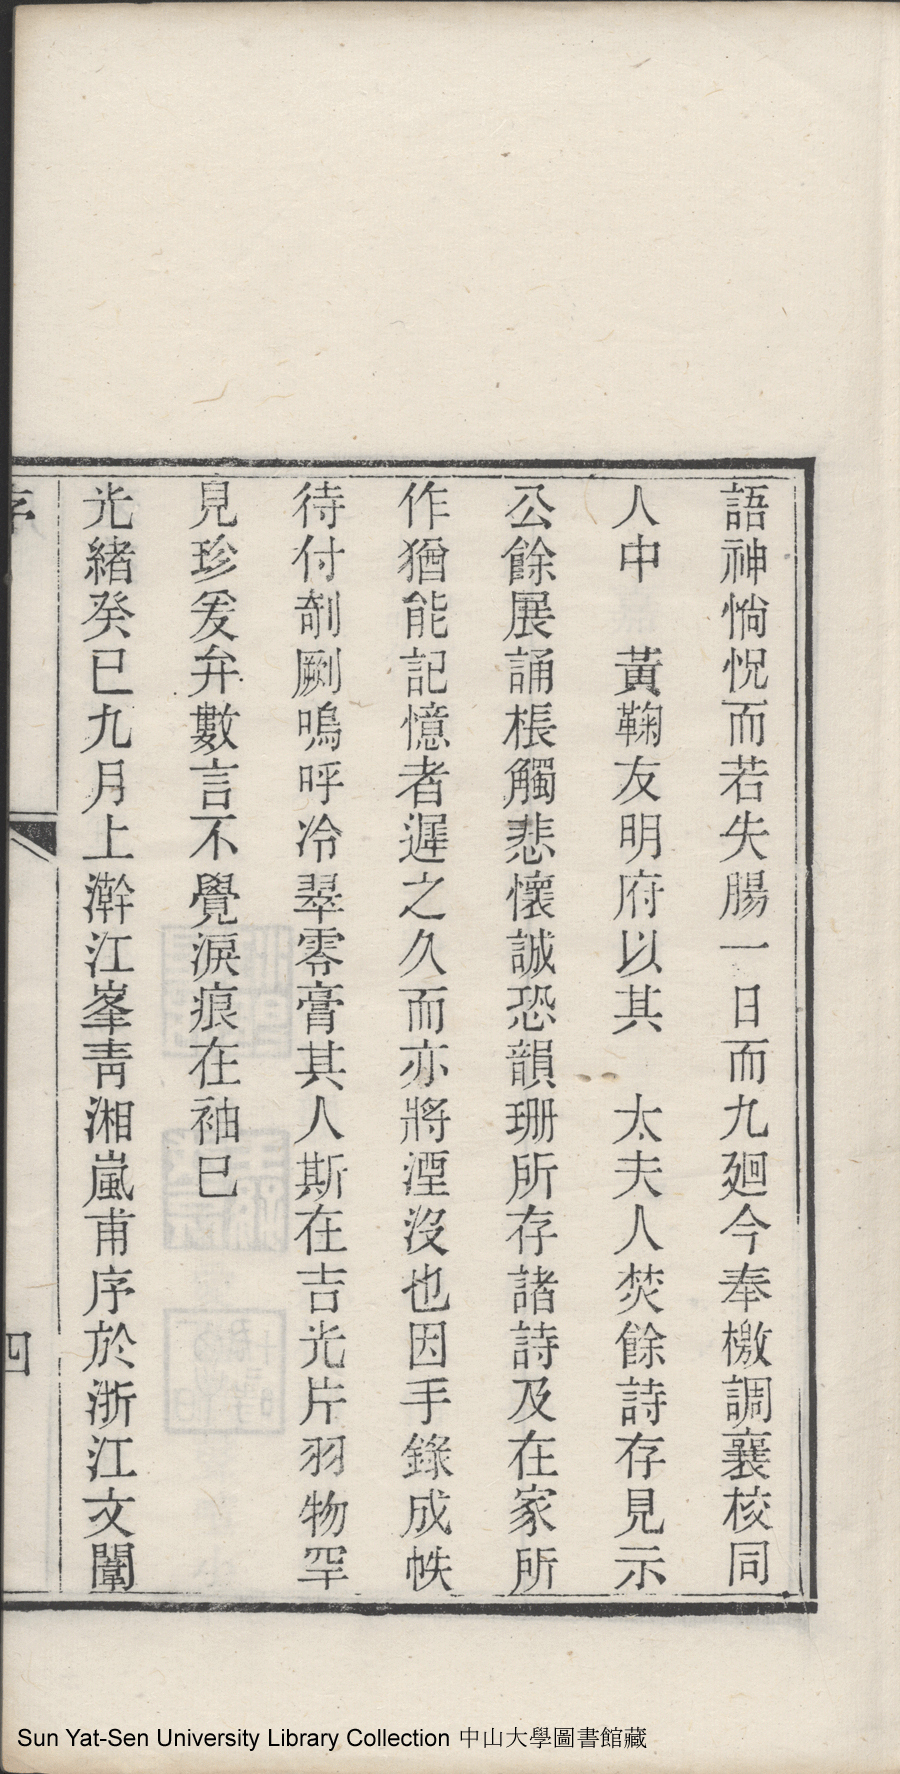 語神惝怳而若失腸一日而九廻今奉檄調襄校同
人中　黃鞠友明府以其　太夫人焚餘詩存見示
公餘展誦棖觸悲懷誠恐韻珊所存諸詩及在家所
作猶能記憶者遲之久而亦將湮沒也因手錄成帙
待付剞劂嗚呼冷翠零膏其人斯在吉光片羽物罕
見珍爰弁數言不覺淚痕在袖巳
光緒癸巳九月上澣江峯靑湘嵐甫序於浙江文闈
序
四
Sun Yat-Sen University Library Collection 中山大學圖書館藏